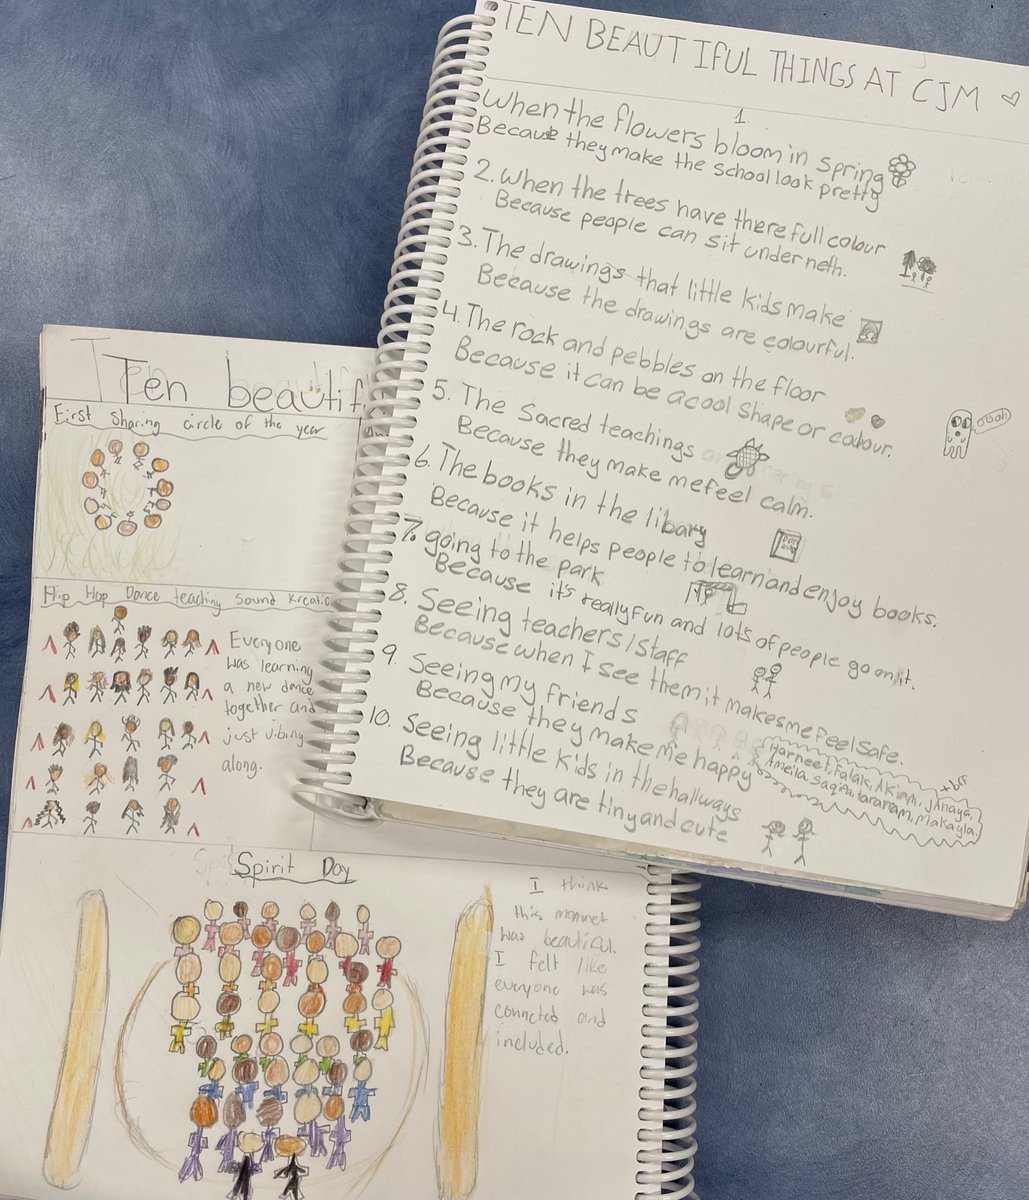 TEN BEAUTIFUL THINGS AT CJM
1.
When the flowers bloom in spring
Because they make the school look pretty
2. When the trees have there full colour
Because people can sit under neth.
3. The drawings that little kids make
Because the drawings are colourful.
4. The rock and pebbles on the floor
Because it can be a cool shape or colour.
oooh
5. The Sacred teachings
Because they make me feel calm.
6. The books in the libary
Because it helps people to learn and enjoy books.
7. going to the park
Because it's really fun and lots of people go on it.
8. Seeing teachers/staff
Because when I see them it makes me feel safe.
9. Seeing my friends
Because they make me happy
Harneet, Falak, Akiam, Janaya,
Ameila, Saqira, taranam, Makayla,
10. Seeing little kids in the hallways
Because they are tiny and cute
Ten beautif
First Sharing circle of the year
Hip Hop Dance teaching Sound Kreatio
Everyone
was learning
a new dance
together and
just vibing
along.
Spirit Day
I think
this momnet
was beautiful.
I felt like
everyone was
conncted and
included.